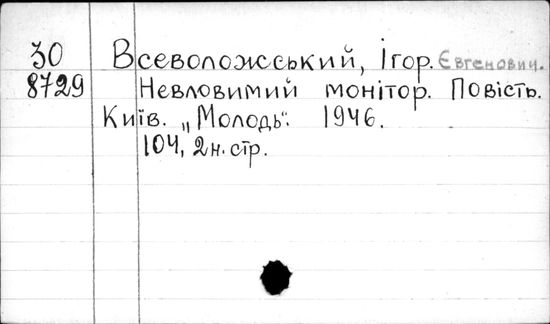 30 Всеволожський, Ігор. Євгенович.
8729 Невловимий монітор. Повість.
Київ. „Молодь". 1946.
104, 2 н. стр.